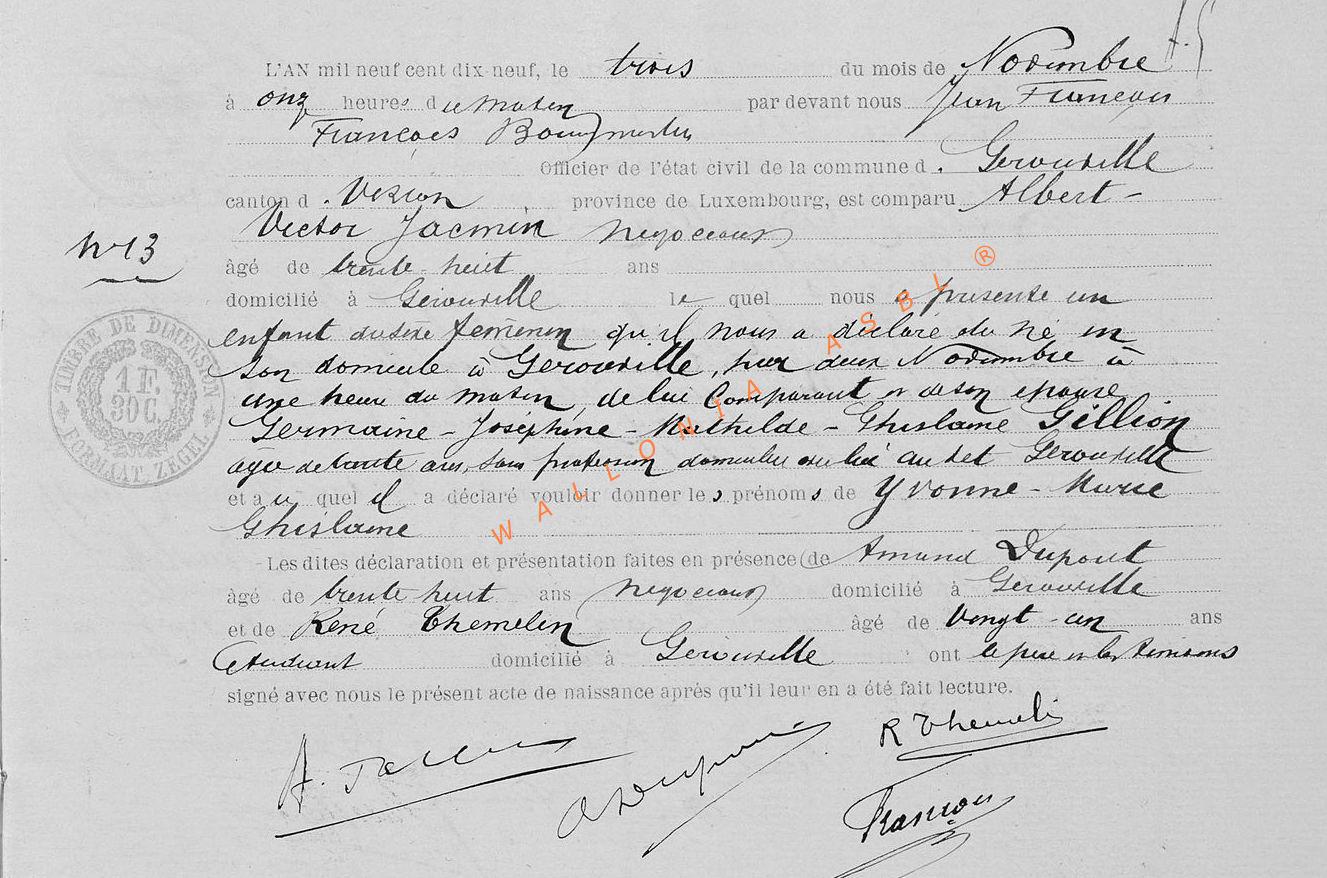 L'AN mil neuf cent dix-neuf, le trois du mois de Novembre
à onz heures du matin par devant nous Jean François
François Bourgmestre
Officier de l'état civil de la commune d. Gérouville
canton d. Virton province de Luxembourg, est comparu Albert-
Victor Jacmin négociant
N° 13
âgé de trente-huit ans
domicilié à Gérouville le quel nous a présenté un
enfant du sexe féminin qu'il nous a déclaré être né en
son domicile à Gérouville, hier deux Novembre à
une heure du matin, de lui Comparant et de son épouse
Germaine-Joséphine-Mathilde-Ghislaine Gillion
âgée de trente ans, sans profession domiciliée au dit Gérouville
et au quel il a déclaré vouloir donner les prénoms de Yvonne-Marie
Ghislaine
Les dites déclaration et présentation faites en présence de Amand Dupont
âgé de trente-huit ans négociant domicilié à Gérouville
et de René Themelin âgé de vingt-un ans
étudiant domicilié à Gérouville ont le père et les témoins
signé avec nous le présent acte de naissance après qu'il leur en a été fait lecture.
TIMBRE DE DIMENSION
1 F.
30 C.
FORMAAT ZEGEL
WALLONIA ASBL ®
A. Jacmin
A Dupont
R Themelin
François